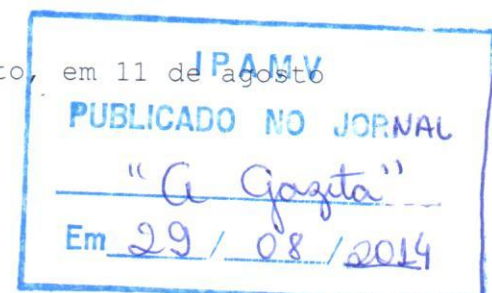 to, em 11 de agosto
I.P.A.M.V
PUBLICADO NO JORNAL
"A Gazeta"
Em 29 / 08 / 2014